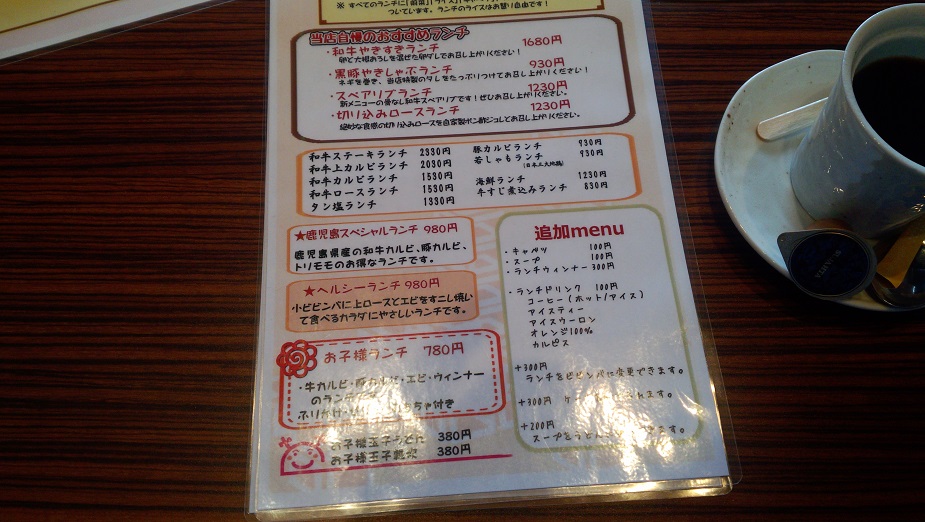 ※ すべてのランチに「前菜」「ライス」
ついています。ランチのライスはお替り自由です!
当店自慢のおすすめランチ
・和牛やきすきランチ 1680円
卵と大根おろしを混ぜた卵ダレでお召し上がりください!
・黒豚やきしゃぶランチ 930円
ネギを巻き、当店特製のタレをたっぷりつけてお召し上がりください!
・スペアリブランチ 1230円
新メニューの骨なし和牛スペアリブです!ぜひお召し上がりください。
・切り込みロースランチ 1230円
絶妙な食感の切り込みロースを自家製ポン酢ジュレでお召し上がりください。
和牛ステーキランチ 2330円
和牛上カルビランチ 2030円
和牛カルビランチ 1530円
和牛ロースランチ 1530円
タン塩ランチ 1330円
豚カルビランチ 930円
若しゃもランチ 930円
海鮮ランチ 1230円
牛すじ煮込みランチ 830円
★鹿児島スペシャルランチ 980円
鹿児島県産の和牛カルビ、豚カルビ、
トリモモのお得なランチです。
★ヘルシーランチ 980円
小ビビンバに上ロースとエビをすこし焼い
て食べるカラダにやさしいランチです。
お子様ランチ 780円
・牛カルビ・豚カルビ・エビ・ウィンナー
のランチ
ふりかけ・ ちゃ付き
お子様玉子うどん 380円
お子様玉子雑炊 380円
追加menu
・キャベツ 100円
・スープ 100円
・ランチウィンナー 300円
・ランチドリンク 100円
コーヒー(ホット/アイス)
アイスティー
アイスウーロン
オレンジ100%
カルピス
+300円
ランチをビビンバに変更できます。
+300円
+200円
スープをうどん きます。